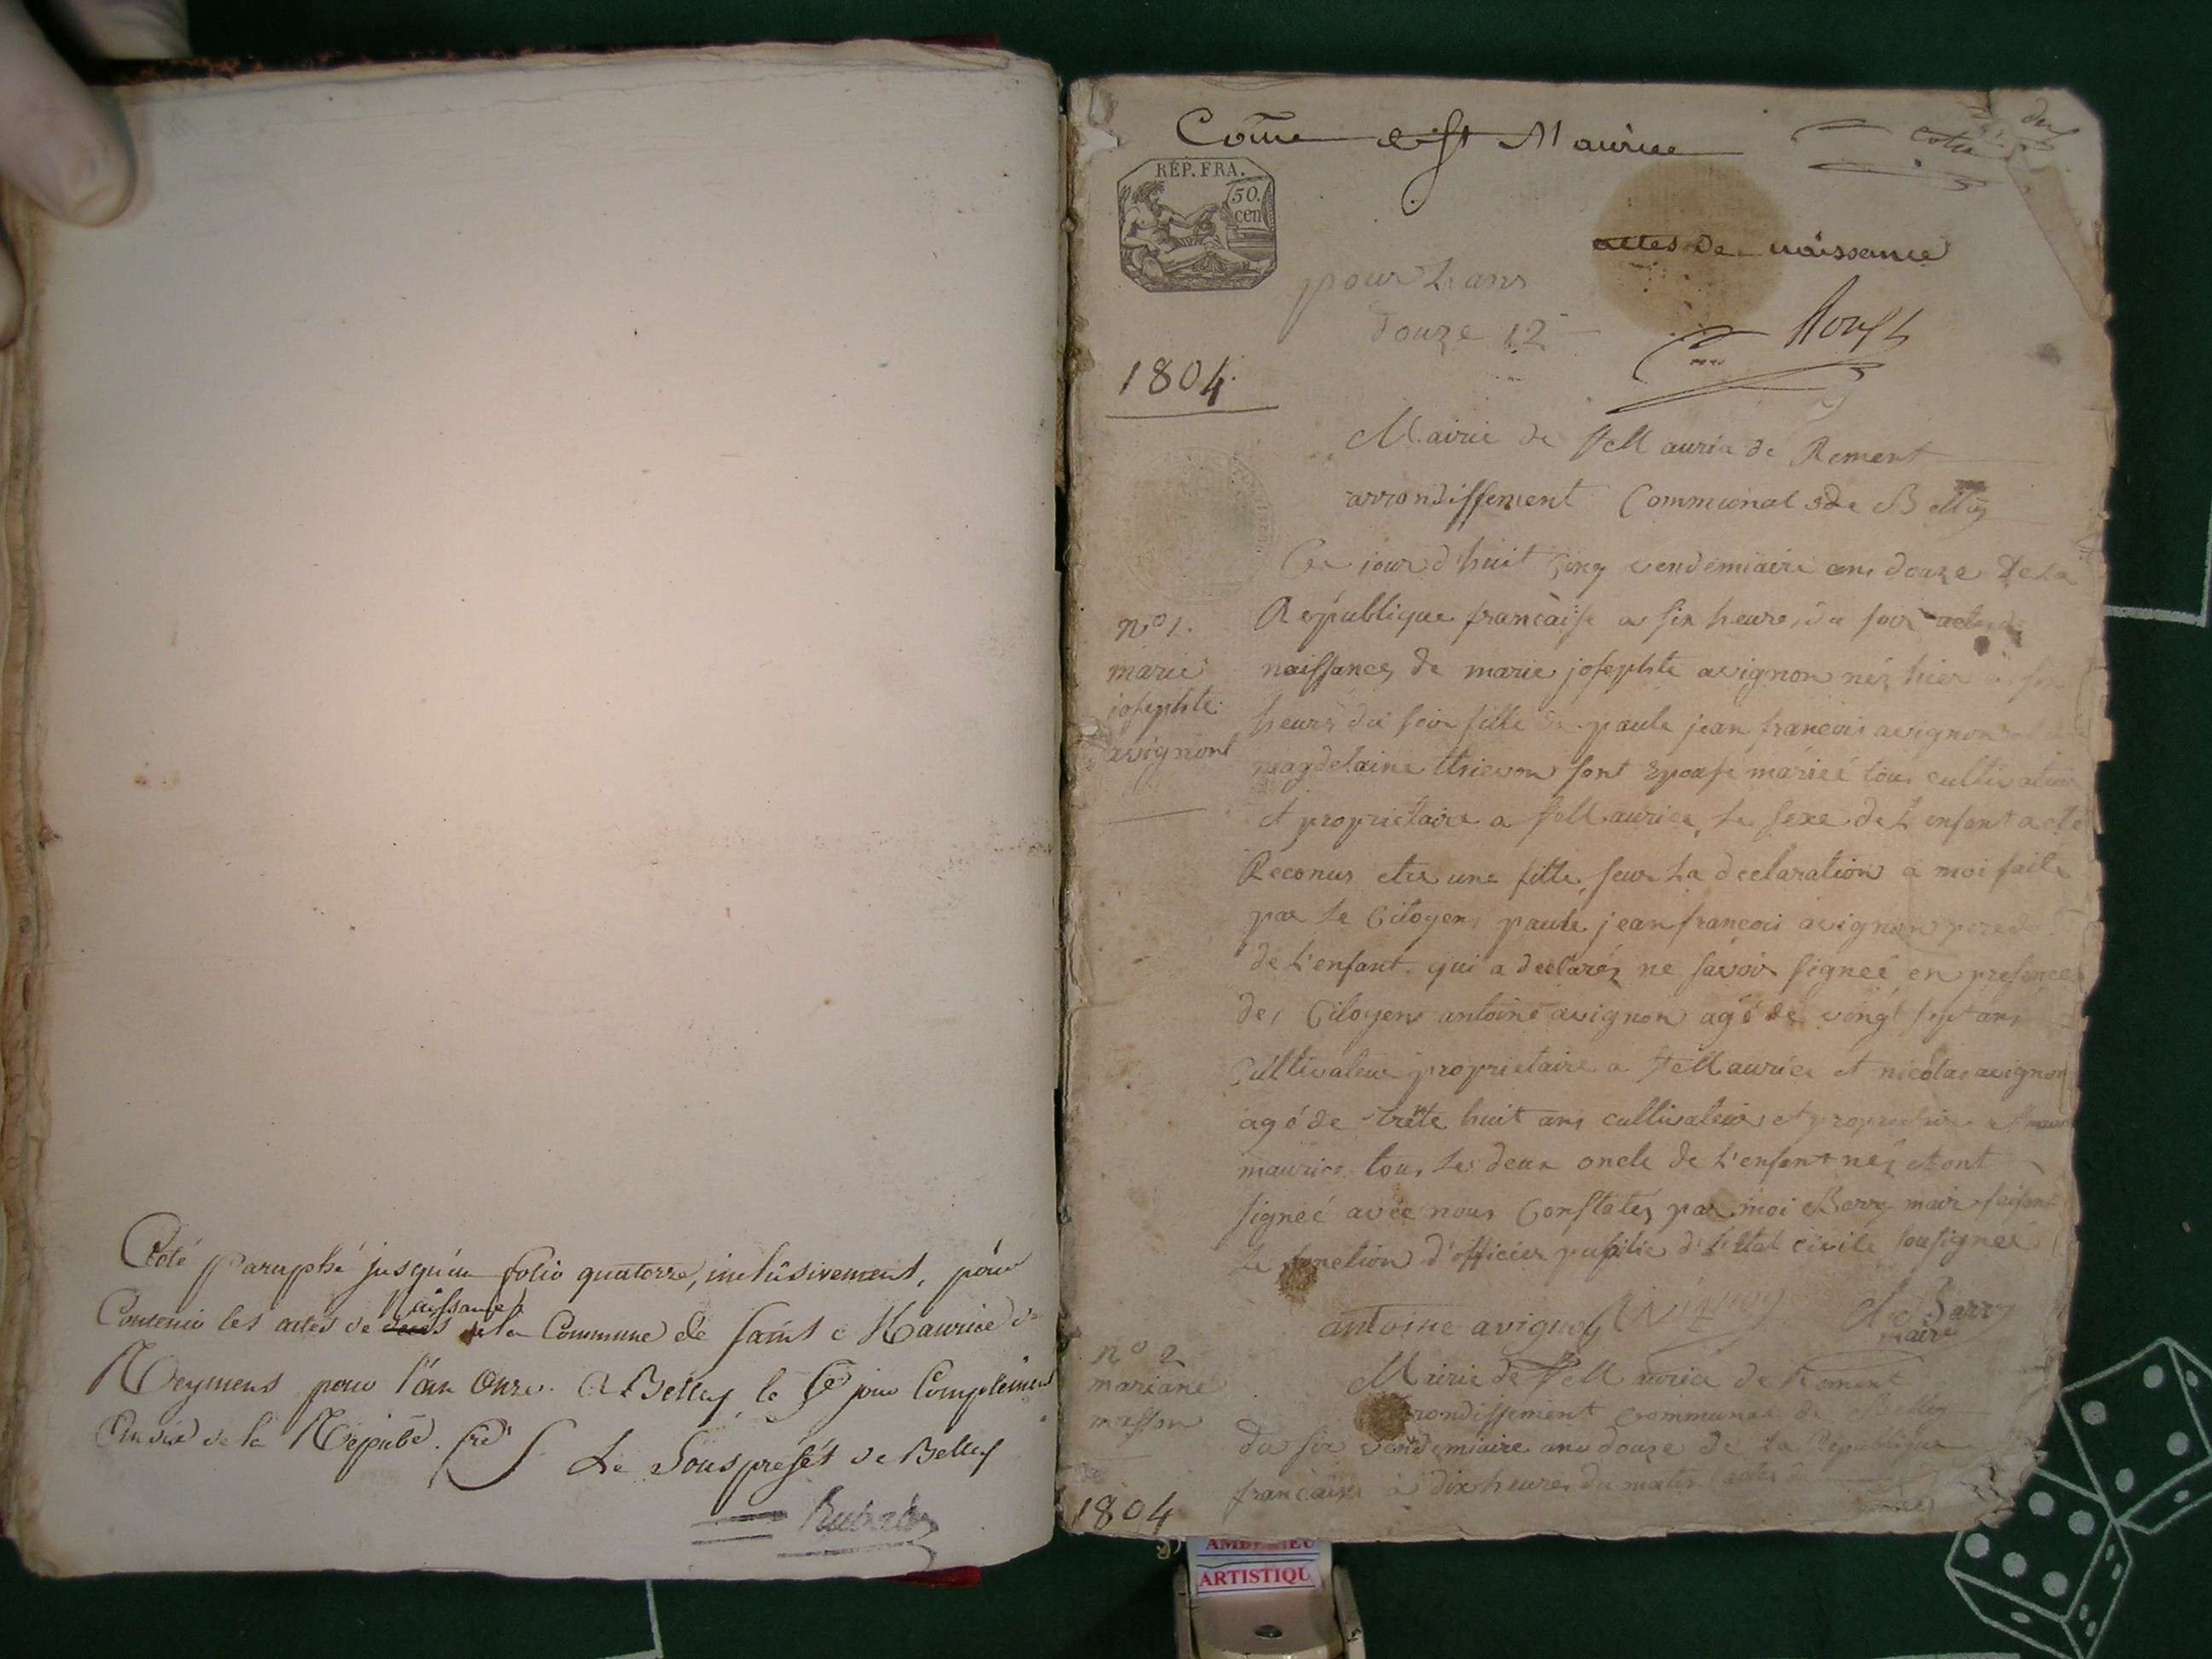 Coté Paraphé jusqu'au folio quatorze, inclusivement, pour
Contenir les actes de naissances de la Commune de Saint Maurice de
Reymens pour l'an Onze. A Belley le 5e jour Complémre
an dix de la Répube. fse
Le Sousprefét de Belley
Come de St Maurice
cotté
RÉP. FRA.
50.
cen
actes de naissance
pour L ans
douze 12
1804.
Mairie de St Maurice de Rement
arrondissement Communal de Belley
Ce jourd'huit cinq vendémiaire ans douze De La
République francaise a six heures du soir acte de
n° 1.
marie
josephte
avignont
naissances de marie josephte avignon néz hier a
heures du soir fille de paule jean francois avignon et de
magdelaine thievon sont Epousé mariéé tous cultivateur
et proprietaire a St Maurice, Le sexe de L'enfant a eté
Reconus etre une fille, sur La declaration a moi faite
par Le Citoyens paule jean francois avignon pere de
de L'enfant qui a declaréz ne savoir signeé en présence
des Citoyens antoine avignon agé de vingt sept ans
Cultivateur proprietaire a St Maurice et nicolas avignon
agé de trête huit ans cultivateur et proprietaire a St
maurice tous Les deux oncle de L'enfant néz et ont
signeé avec nous Constatéz par moi Barry mair faisant
Le fonction d'officier publie d'Létat civile sousigneé
antoine avignon Avignon Barry
maire
n° 2
mariane
masson
Mairie de St Maurice de Rement
arrondissement communal de Belley
Du six vendemiaire ans douze de La Republique
francaise à dix heures du matin acte de
1804
AMBERIEU
ARTISTIQU